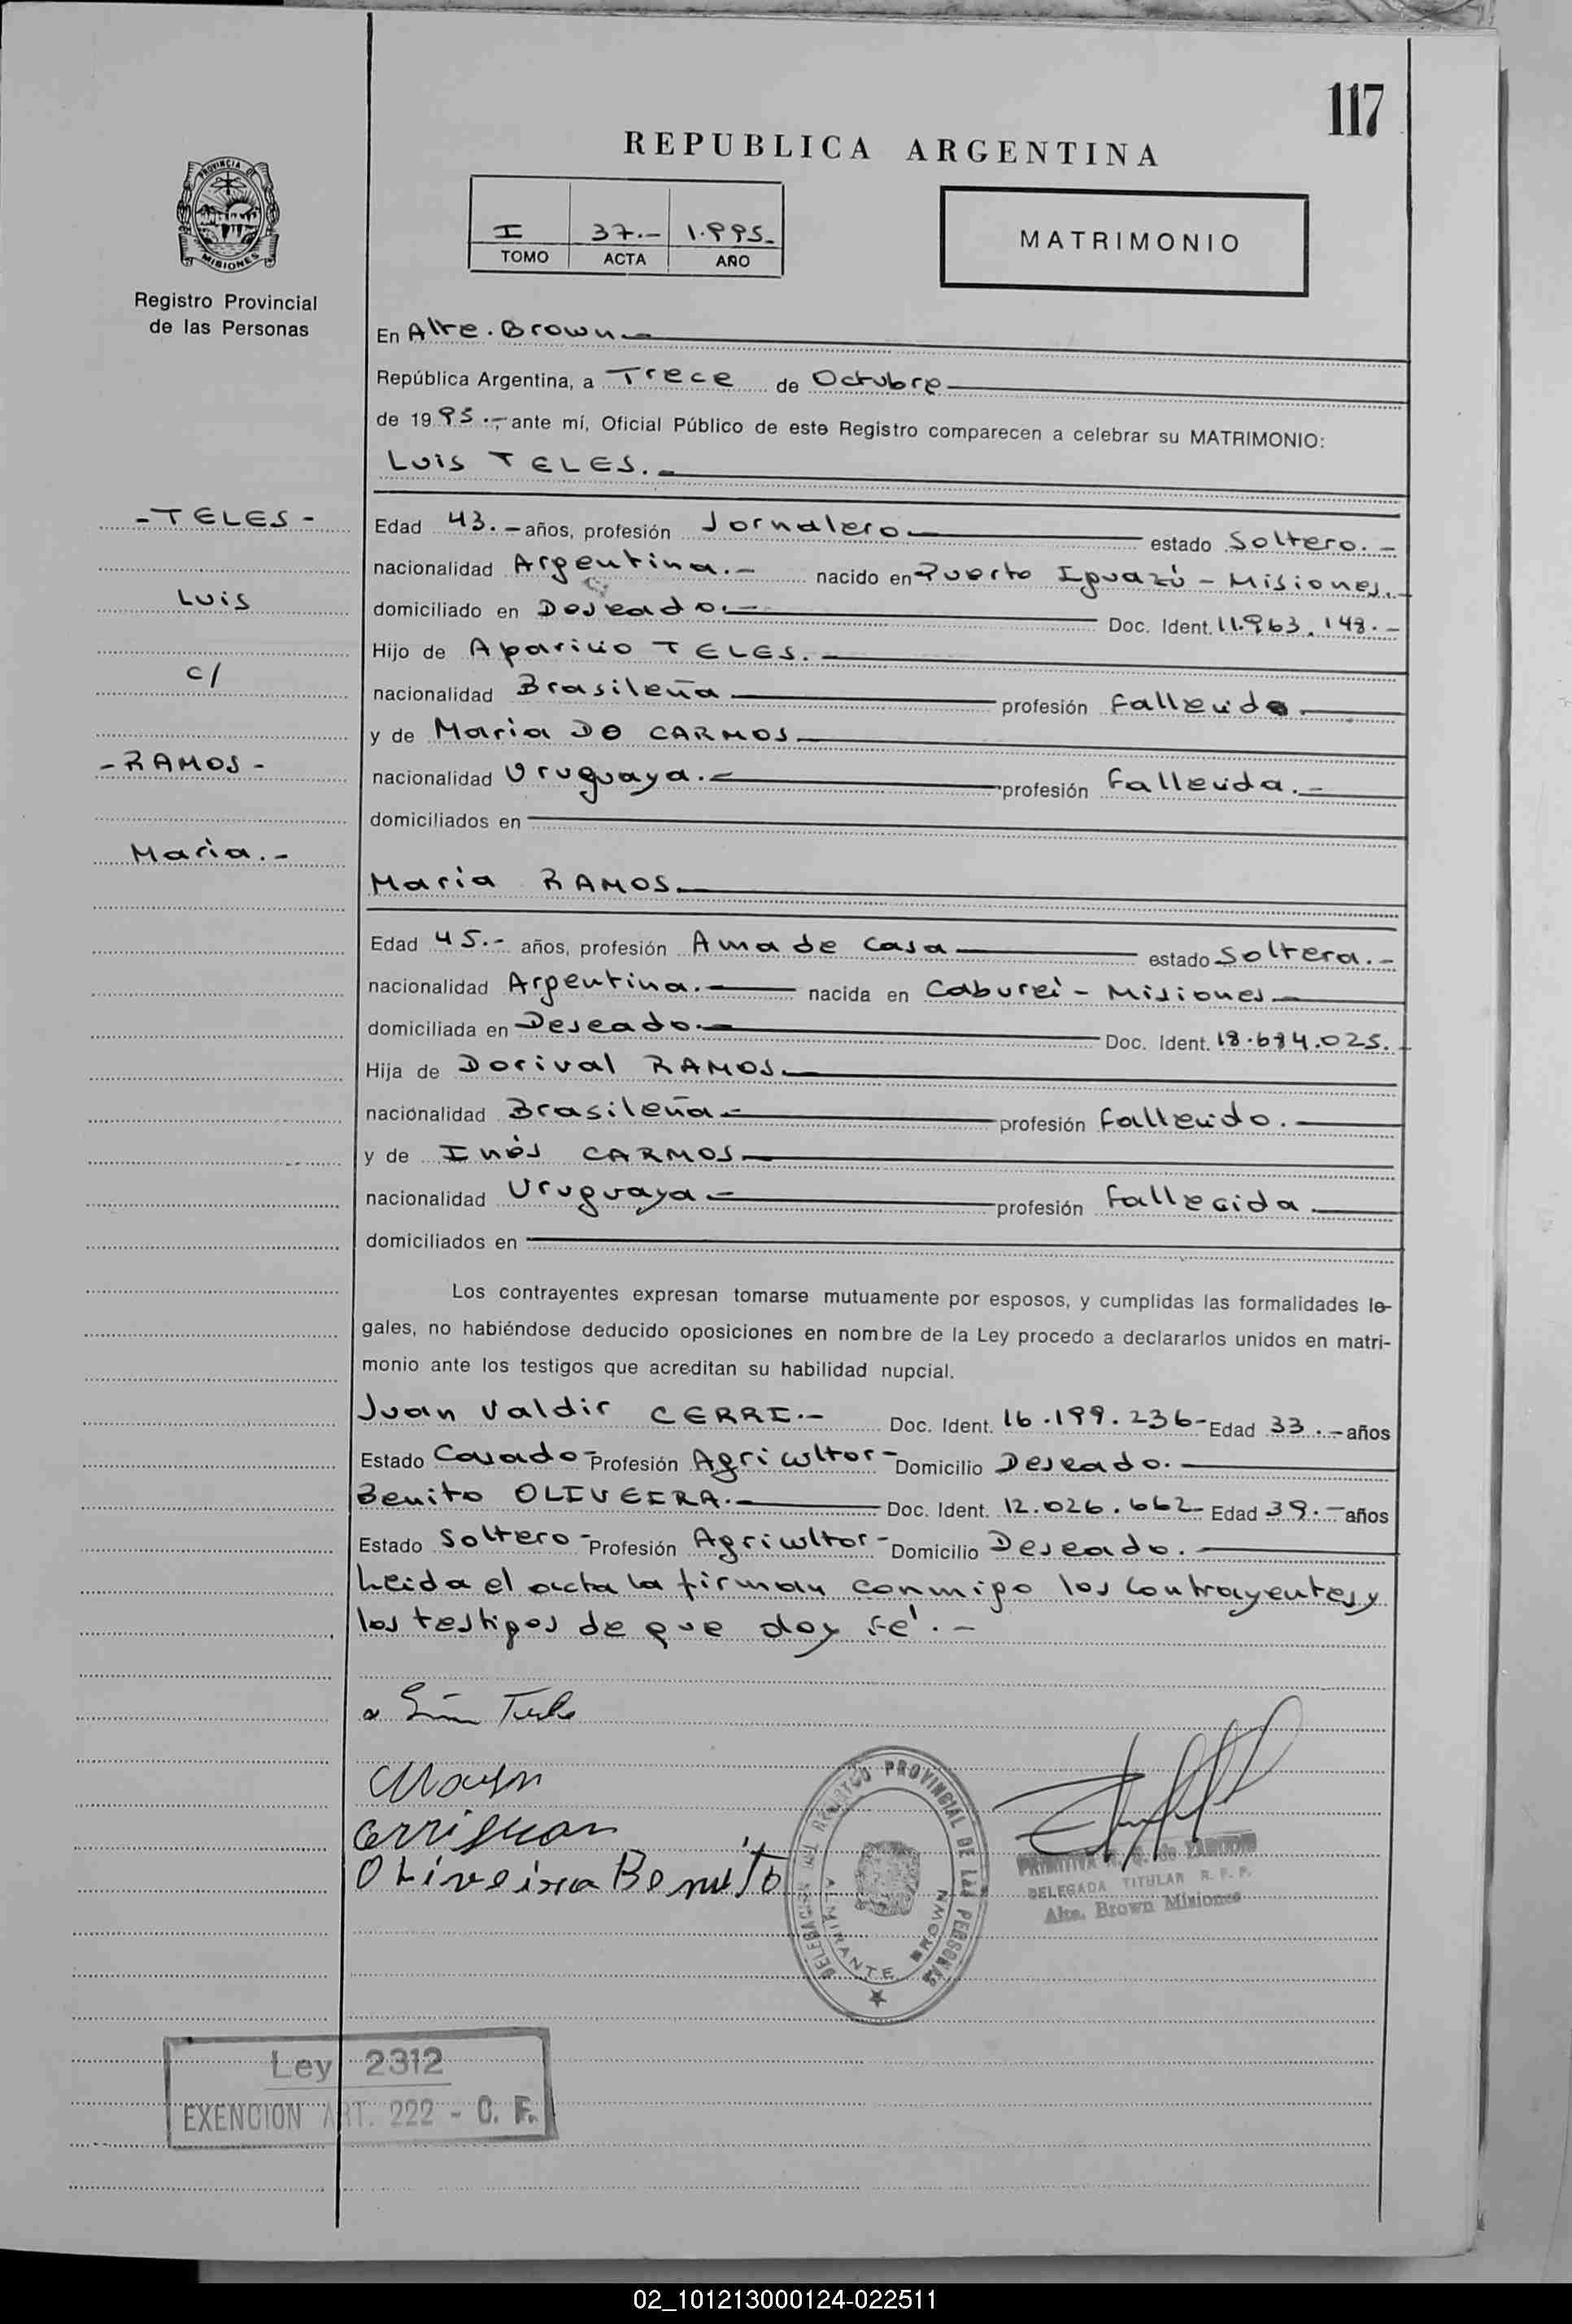 117
REPUBLICA ARGENTINA
I 37.- 1.995.-
TOMO ACTA AÑO
MATRIMONIO
PROVINCIA DE
MISIONES
Registro Provincial
de las Personas
En Alte. Brown.-
República Argentina, a Trece de Octubre
de 1995.-, ante mí, Oficial Público de este Registro comparecen a celebrar su MATRIMONIO:
Luis TELES.-
-TELES-
Edad 43.- años, profesión Jornalero estado Soltero.-
nacionalidad Argentina.- nacido en Puerto Iguazú - Misiones.-
Luis
domiciliado en Deseado.- Doc. Ident. 11.963.148.-
Hijo de Aparicio TELES.
c/
nacionalidad Brasileña profesión fallecido.
y de Maria DO CARMOS.
-RAMOS-
nacionalidad Uruguaya.- profesión fallecida.-
domiciliados en
Maria.-
Maria RAMOS.
Edad 45.- años, profesión Ama de Casa estado Soltera.-
nacionalidad Argentina.- nacida en Caburei - Misiones.
domiciliada en Deseado.- Doc. Ident. 18.684.025.-
Hija de Dorival RAMOS.
nacionalidad Brasileña.- profesión fallecido.-
y de Inés CARMOS.
nacionalidad Uruguaya.- profesión fallecida.
domiciliados en
Los contrayentes expresan tomarse mutuamente por esposos, y cumplidas las formalidades le-
gales, no habiéndose deducido oposiciones en nombre de la Ley procedo a declararlos unidos en matri-
monio ante los testigos que acreditan su habilidad nupcial.
Juan Valdir CERRI.- Doc. Ident. 16.199.236- Edad 33.- años
Estado Casado- Profesión Agricultor- Domicilio Deseado.-
Benito OLIVEIRA.- Doc. Ident. 12.026.662- Edad 39.- años
Estado Soltero- Profesión Agricultor- Domicilio Deseado.-
Leida el acta la firman conmigo los contrayentes y
los testigos de que doy fé.-
Oliveira Benito
DELEGACION DEL REGISTRO PROVINCIAL DE LAS PERSONAS
ALMIRANTE BROWN
DELEGADA TITULAR R. P. P.
Alte. Brown Misiones
Ley 2312
EXENCION ART. 222 - C. F.
02_101213000124-022511